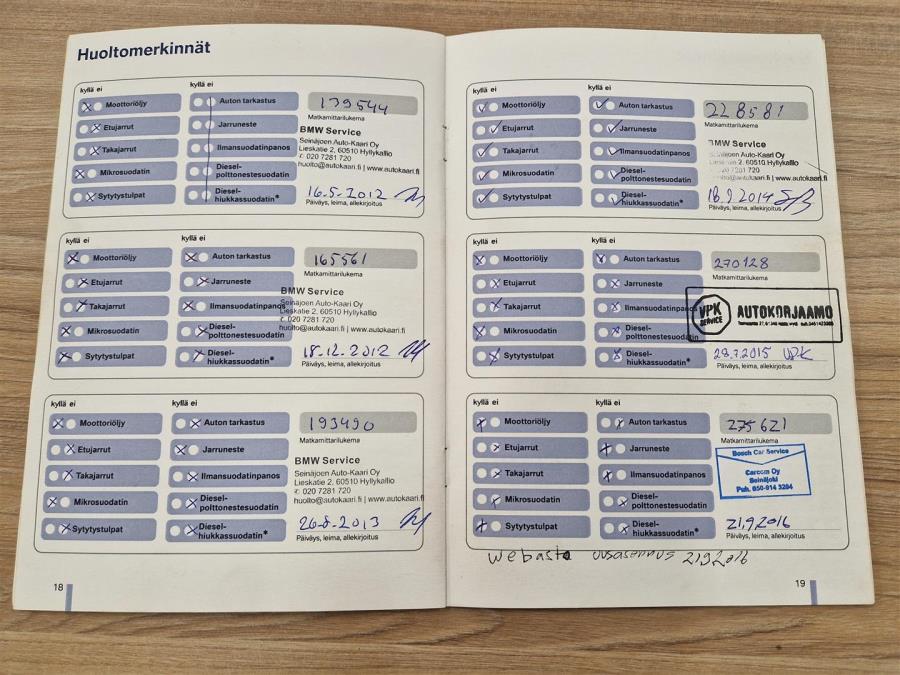 Huoltomerkinnät
kyllä ei kyllä ei
Moottoriöljy Auton tarkastus 139544
Matkamittarilukema
Etujarrut Jarruneste
BMW Service
Takajarrut Ilmansuodatinpanos
Seinäjoen Auto-Kaari Oy
Lieskatie 2, 60510 Hyllykallio
020 7281 720
huolto@autokaari.fi | www.autokaari.fi
Mikrosuodatin Diesel-
polttonestesuodatin
Sytytystulpat Diesel-
hiukkassuodatin*
16.5.2012
Päiväys, leima, allekirjoitus
kyllä ei kyllä ei
Moottoriöljy Auton tarkastus 165561
Matkamittarilukema
Etujarrut Jarruneste
BMW Service
Takajarrut Ilmansuodatinpanos
Seinäjoen Auto-Kaari Oy
Lieskatie 2, 60510 Hyllykallio
020 7281 720
huolto@autokaari.fi | www.autokaari.fi
Mikrosuodatin Diesel-
polttonestesuodatin
Sytytystulpat Diesel-
hiukkassuodatin*
18.12.2012
Päiväys, leima, allekirjoitus
kyllä ei kyllä ei
Moottoriöljy Auton tarkastus 193490
Matkamittarilukema
Etujarrut Jarruneste
BMW Service
Takajarrut Ilmansuodatinpanos
Seinäjoen Auto-Kaari Oy
Lieskatie 2, 60510 Hyllykallio
020 7281 720
huolto@autokaari.fi | www.autokaari.fi
Mikrosuodatin Diesel-
polttonestesuodatin
Sytytystulpat Diesel-
hiukkassuodatin*
26.8.2013
Päiväys, leima, allekirjoitus
18
kyllä ei kyllä ei
Moottoriöljy Auton tarkastus 228581
Matkamittarilukema
Etujarrut Jarruneste
BMW Service
Takajarrut Ilmansuodatinpanos
Seinäjoen Auto-Kaari Oy
Lieskatie 2, 60510 Hyllykallio
020 7281 720
huolto@autokaari.fi | www.autokaari.fi
Mikrosuodatin Diesel-
polttonestesuodatin
Sytytystulpat Diesel-
hiukkassuodatin*
18.9.2014
Päiväys, leima, allekirjoitus
kyllä ei kyllä ei
Moottoriöljy Auton tarkastus 270128
Matkamittarilukema
Etujarrut Jarruneste
Takajarrut Ilmansuodatinpanos
VPK SERVICE AUTOKORJAAMO
Mikrosuodatin Diesel-
polttonestesuodatin
Sytytystulpat Diesel-
hiukkassuodatin*
28.7.2015 VPK
Päiväys, leima, allekirjoitus
kyllä ei kyllä ei
Moottoriöljy Auton tarkastus 275621
Matkamittarilukema
Etujarrut Jarruneste
Bosch Car Service
Takajarrut Ilmansuodatinpanos
Carcom Oy
Seinäjoki
Puh. 050-914 3284
Mikrosuodatin Diesel-
polttonestesuodatin
Sytytystulpat Diesel-
hiukkassuodatin*
21.9.2016
Päiväys, leima, allekirjoitus
webasto uusasennus 21.9.2016
19